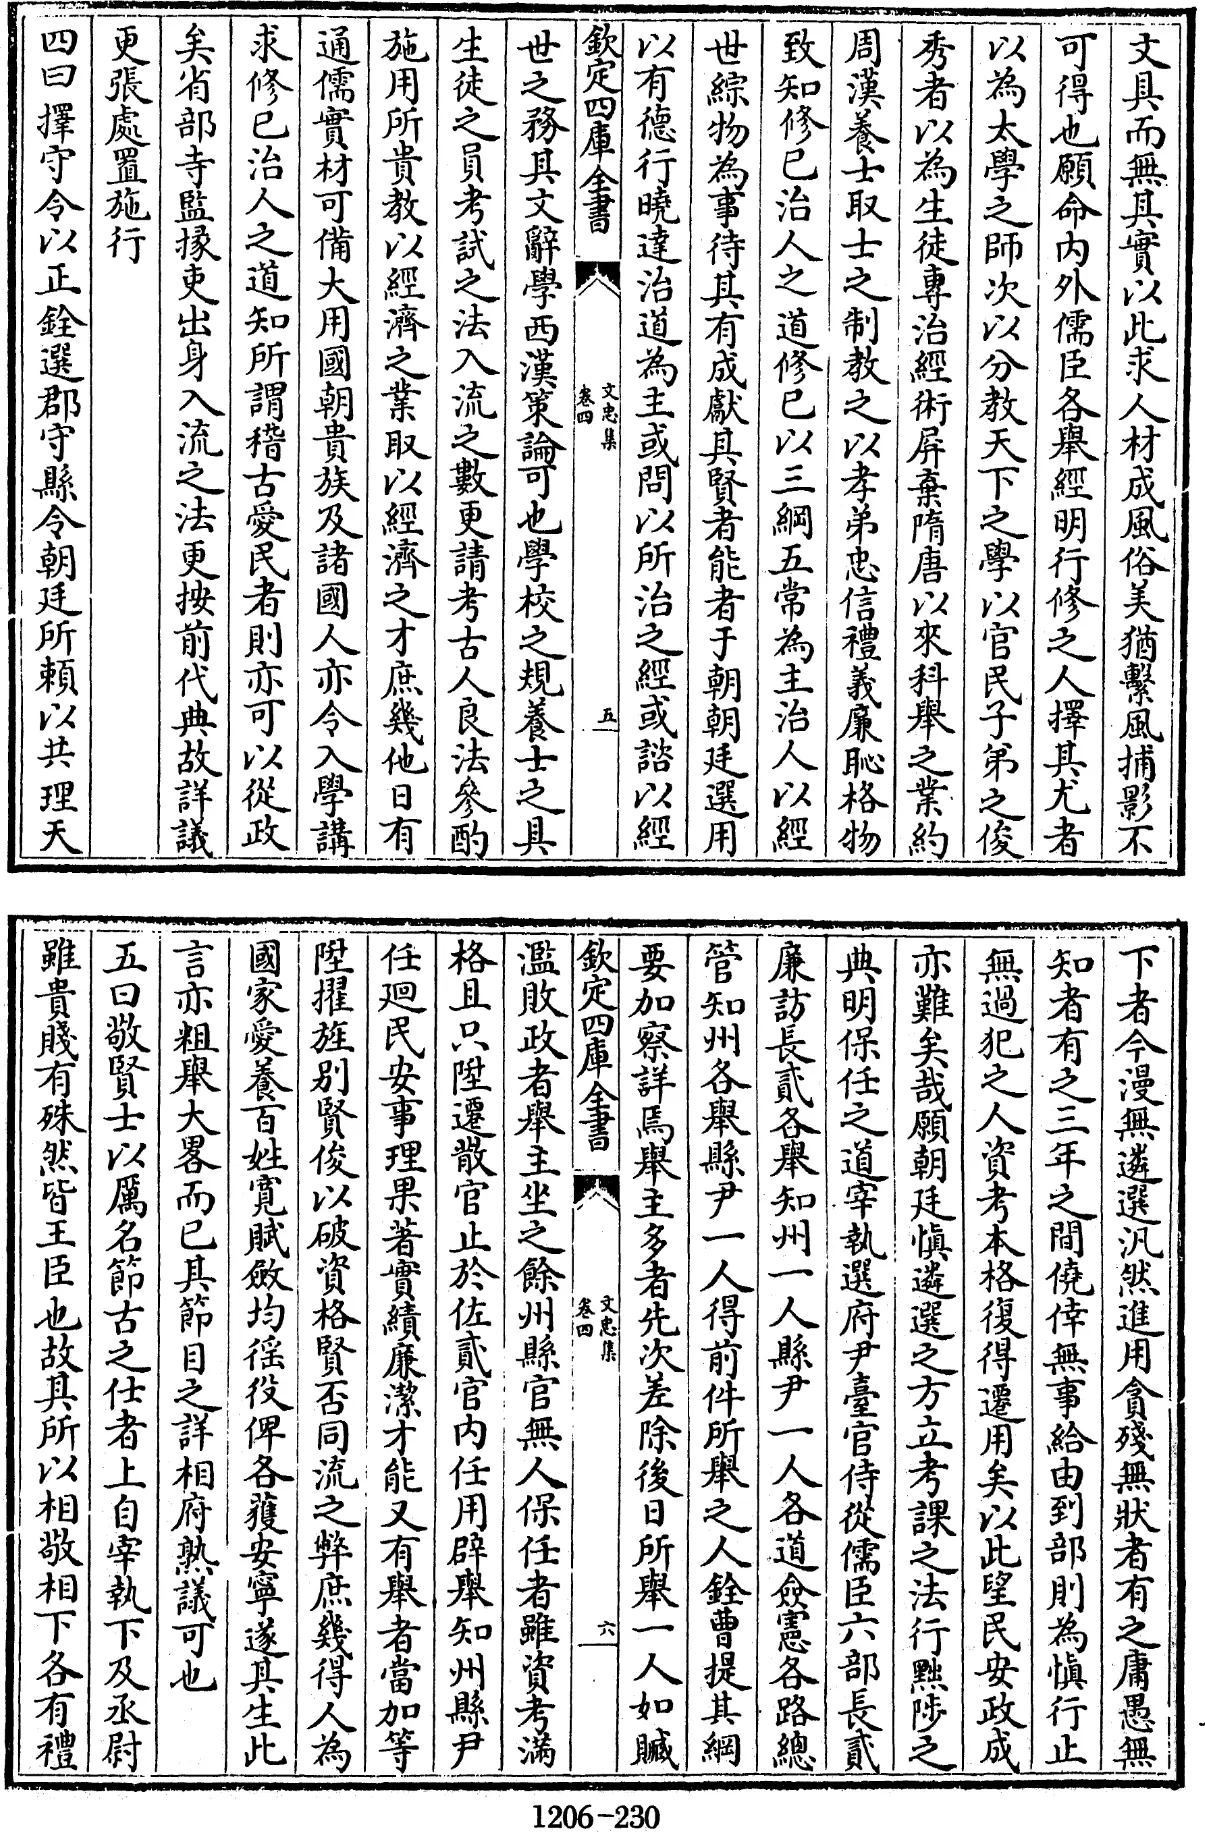 文具而無其實以此求人材成風俗美猶繫風捕影不
可得也願命内外儒臣各舉經明行修之人擇其尤者
以為太學之師次以分教天下之學以官民子弟之俊
秀者以為生徒專治經術屏棄隋唐以來科舉之業約
周漢養士取士之制教之以孝弟忠信禮義廉恥格物
致知修己治人之道修己以三綱五常為主治人以經
世綜物為事待其有成獻其賢者能者于朝朝廷選用
以有德行曉達治道為主或問以所治之經或諮以經
欽定四庫全書
文忠集
卷四
五
世之務其文辭學西漢策論可也學校之規養士之具
生徒之員考試之法入流之數更請考古人良法參酌
施用所貴教以經濟之業取以經濟之才庶幾他日有
通儒實材可備大用國朝貴族及諸國人亦令入學講
求修己治人之道知所謂稽古愛民者則亦可以從政
矣省部寺監掾吏出身入流之法更按前代典故詳議
更張處置施行
四曰擇守令以正銓選郡守縣令朝廷所賴以共理天
下者今漫無遴選汎然進用貪殘無狀者有之庸愚無
知者有之三年之間僥倖無事給由到部則為慎行止
無過犯之人資考本格復得遷用矣以此望民安政成
亦難矣哉願朝廷慎遴選之方立考課之法行黜陟之
典明保任之道宰執選府尹臺官侍從儒臣六部長貳
廉訪長貳各舉知州一人縣尹一人各道僉憲各路總
管知州各舉縣尹一人得前件所舉之人銓曹提其綱
要加察詳焉舉主多者先次差除後日所舉一人如贓
欽定四庫全書
文忠集
卷四
六
濫敗政者舉主坐之餘州縣官無人保任者雖資考滿
格且只陞遷散官止於佐貳官内任用辟舉知州縣尹
任迴民安事理果著實績廉潔才能又有舉者當加等
陞擢旌別賢俊以破資格賢否同流之弊庶幾得人為
國家愛養百姓寬賦斂均徭役俾各獲安寧遂其生此
言亦粗舉大畧而已其節目之詳相府熟議可也
五曰敬賢士以厲名節古之仕者上自宰執下及丞尉
雖貴賤有殊然皆王臣也故其所以相敬相下各有禮
1206-230